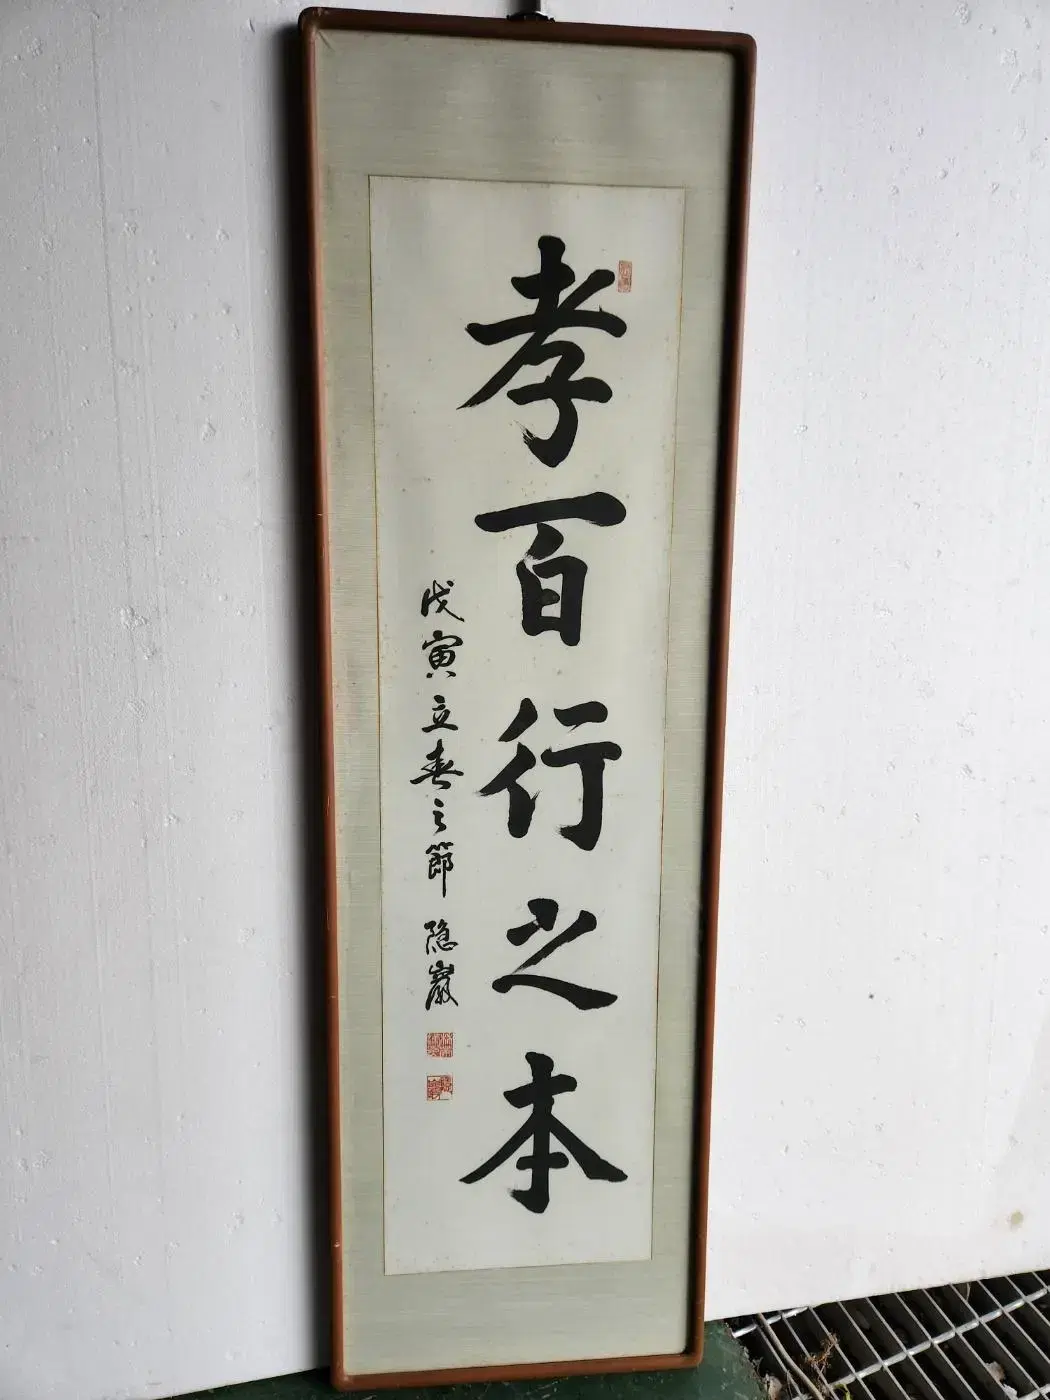 孝百行之本
戊寅立春之節 隐巖